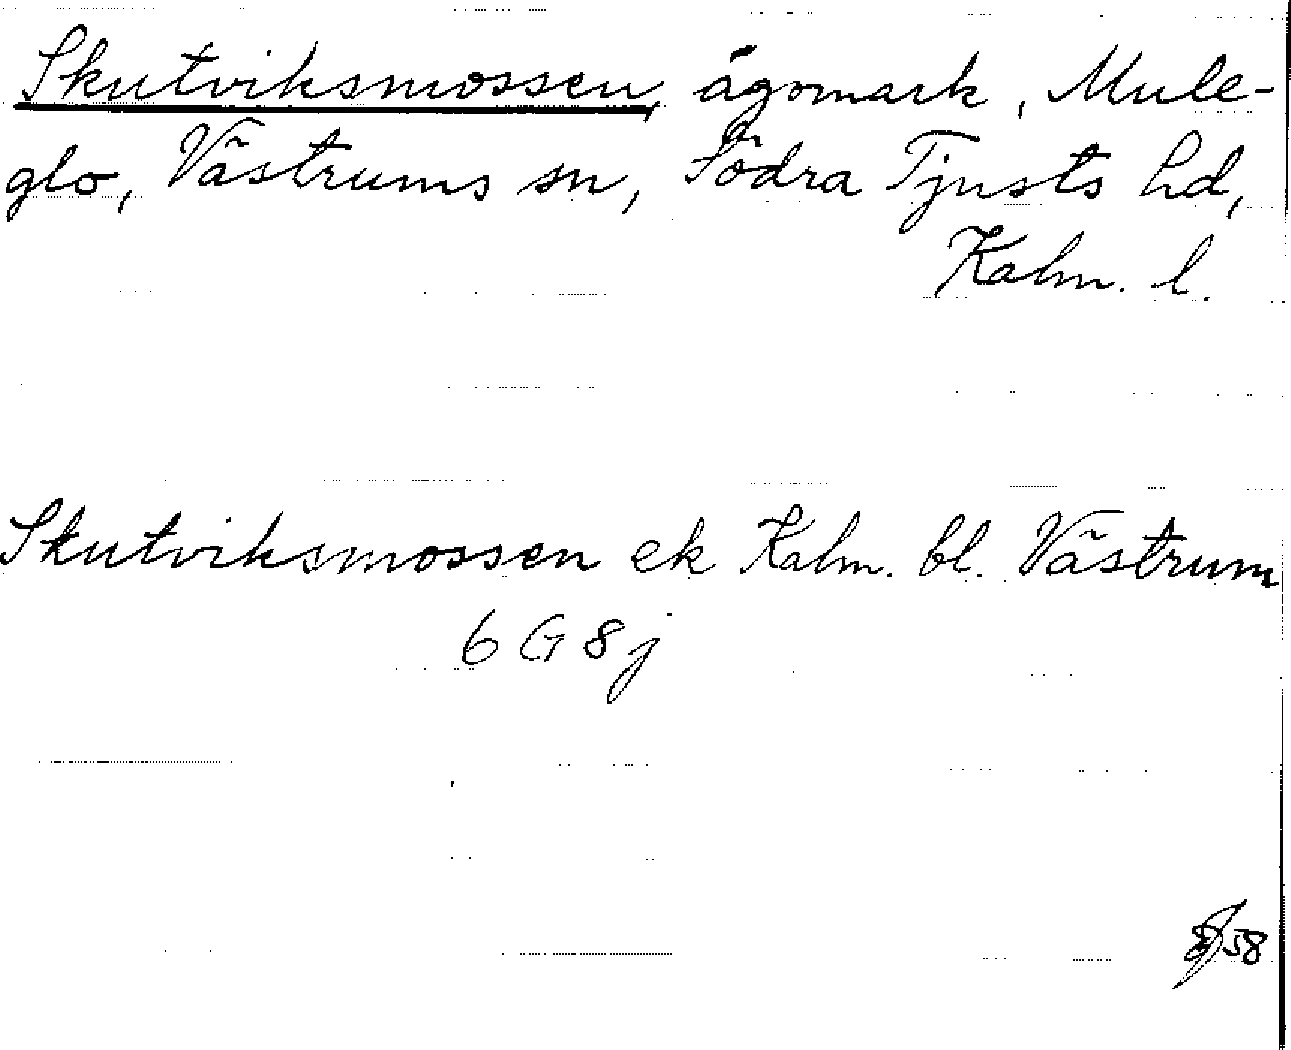 Skutviksmossen, ägomark, Mule-
glo, Västrums sn, Södra Tjusts hd,
Kalm. l.
Skutviksmossen ek Kalm. bl. Västrum
6 G 8 j
58